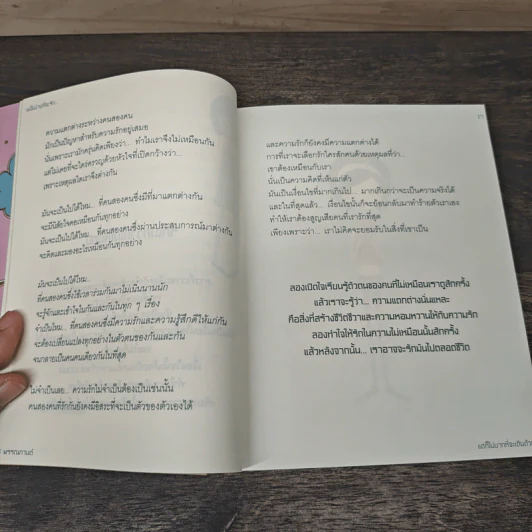 ความแตกต่างระหว่างคนสองคน
มักเป็นปัญหาสำหรับความรักอยู่เสมอ
นั่นเพราะเรามักครุ่นคิดเพียงว่า... ทำไมเราจึงไม่เหมือนกัน
แต่ไม่เคยที่จะใคร่ครวญด้วยหัวใจที่เปิดกว้างว่า...
เพราะเหตุใดเราจึงต่างกัน
มันจะเป็นไปได้ไหม... ที่คนสองคนซึ่งมีที่มาแตกต่างกัน
จะมีนิสัยใจคอเหมือนกันทุกอย่าง
มันจะเป็นไปได้ไหม... ที่คนสองคนซึ่งผ่านประสบการณ์มาต่างกัน
จะคิดและมองอะไรเหมือนกันทุกอย่าง
มันจะเป็นไปได้ไหม...
ที่คนสองคนซึ่งใช้เวลาร่วมกันมาไม่เนิ่นนานนัก
จะรู้จักและเข้าใจในกันและกันในทุก ๆ เรื่อง
จำเป็นไหม... ที่คนสองคนซึ่งมีความรักและความรู้สึกดีให้แก่กัน
จะต้องเปลี่ยนแปลงทุกอย่างในตัวตนของกันและกัน
จนกลายเป็นคนคนเดียวกันในที่สุด
ไม่จำเป็นเลย... ความรักไม่จำเป็นต้องเป็นเช่นนั้น
คนสองคนที่รักกันยังคงมีอิสระที่จะเป็นตัวของตัวเองได้
พรรณกานต์
และความรักก็ยังคงมีความแตกต่างได้
การที่เราจะเลือกรักใครสักคนด้วยเหตุผลที่ว่า...
เขาต้องเหมือนกับเรา
นั่นเป็นความคิดที่เห็นแก่ตัว
มันเป็นเงื่อนไขที่มากเกินไป... มากเกินกว่าจะเป็นความจริงได้
และในที่สุดแล้ว... เงื่อนไขนั้นก็จะย้อนกลับมาทำร้ายตัวเราเอง
ทำให้เราต้องสูญเสียคนที่เรารักที่สุด
เพียงเพราะว่า... เราไม่คิดจะยอมรับในสิ่งที่เขาเป็น
ลองเปิดใจเรียนรู้ตัวตนของคนที่ไม่เหมือนเราดูสักครั้ง
แล้วเราจะรู้ว่า... ความแตกต่างนั่นแหละ
คือสิ่งที่สร้างชีวิตชีวาและความหอมหวานให้กับความรัก
ลองทำใจให้รักในความไม่เหมือนนั้นสักครั้ง
แล้วหลังจากนั้น... เราอาจจะรักมันไปตลอดชีวิต